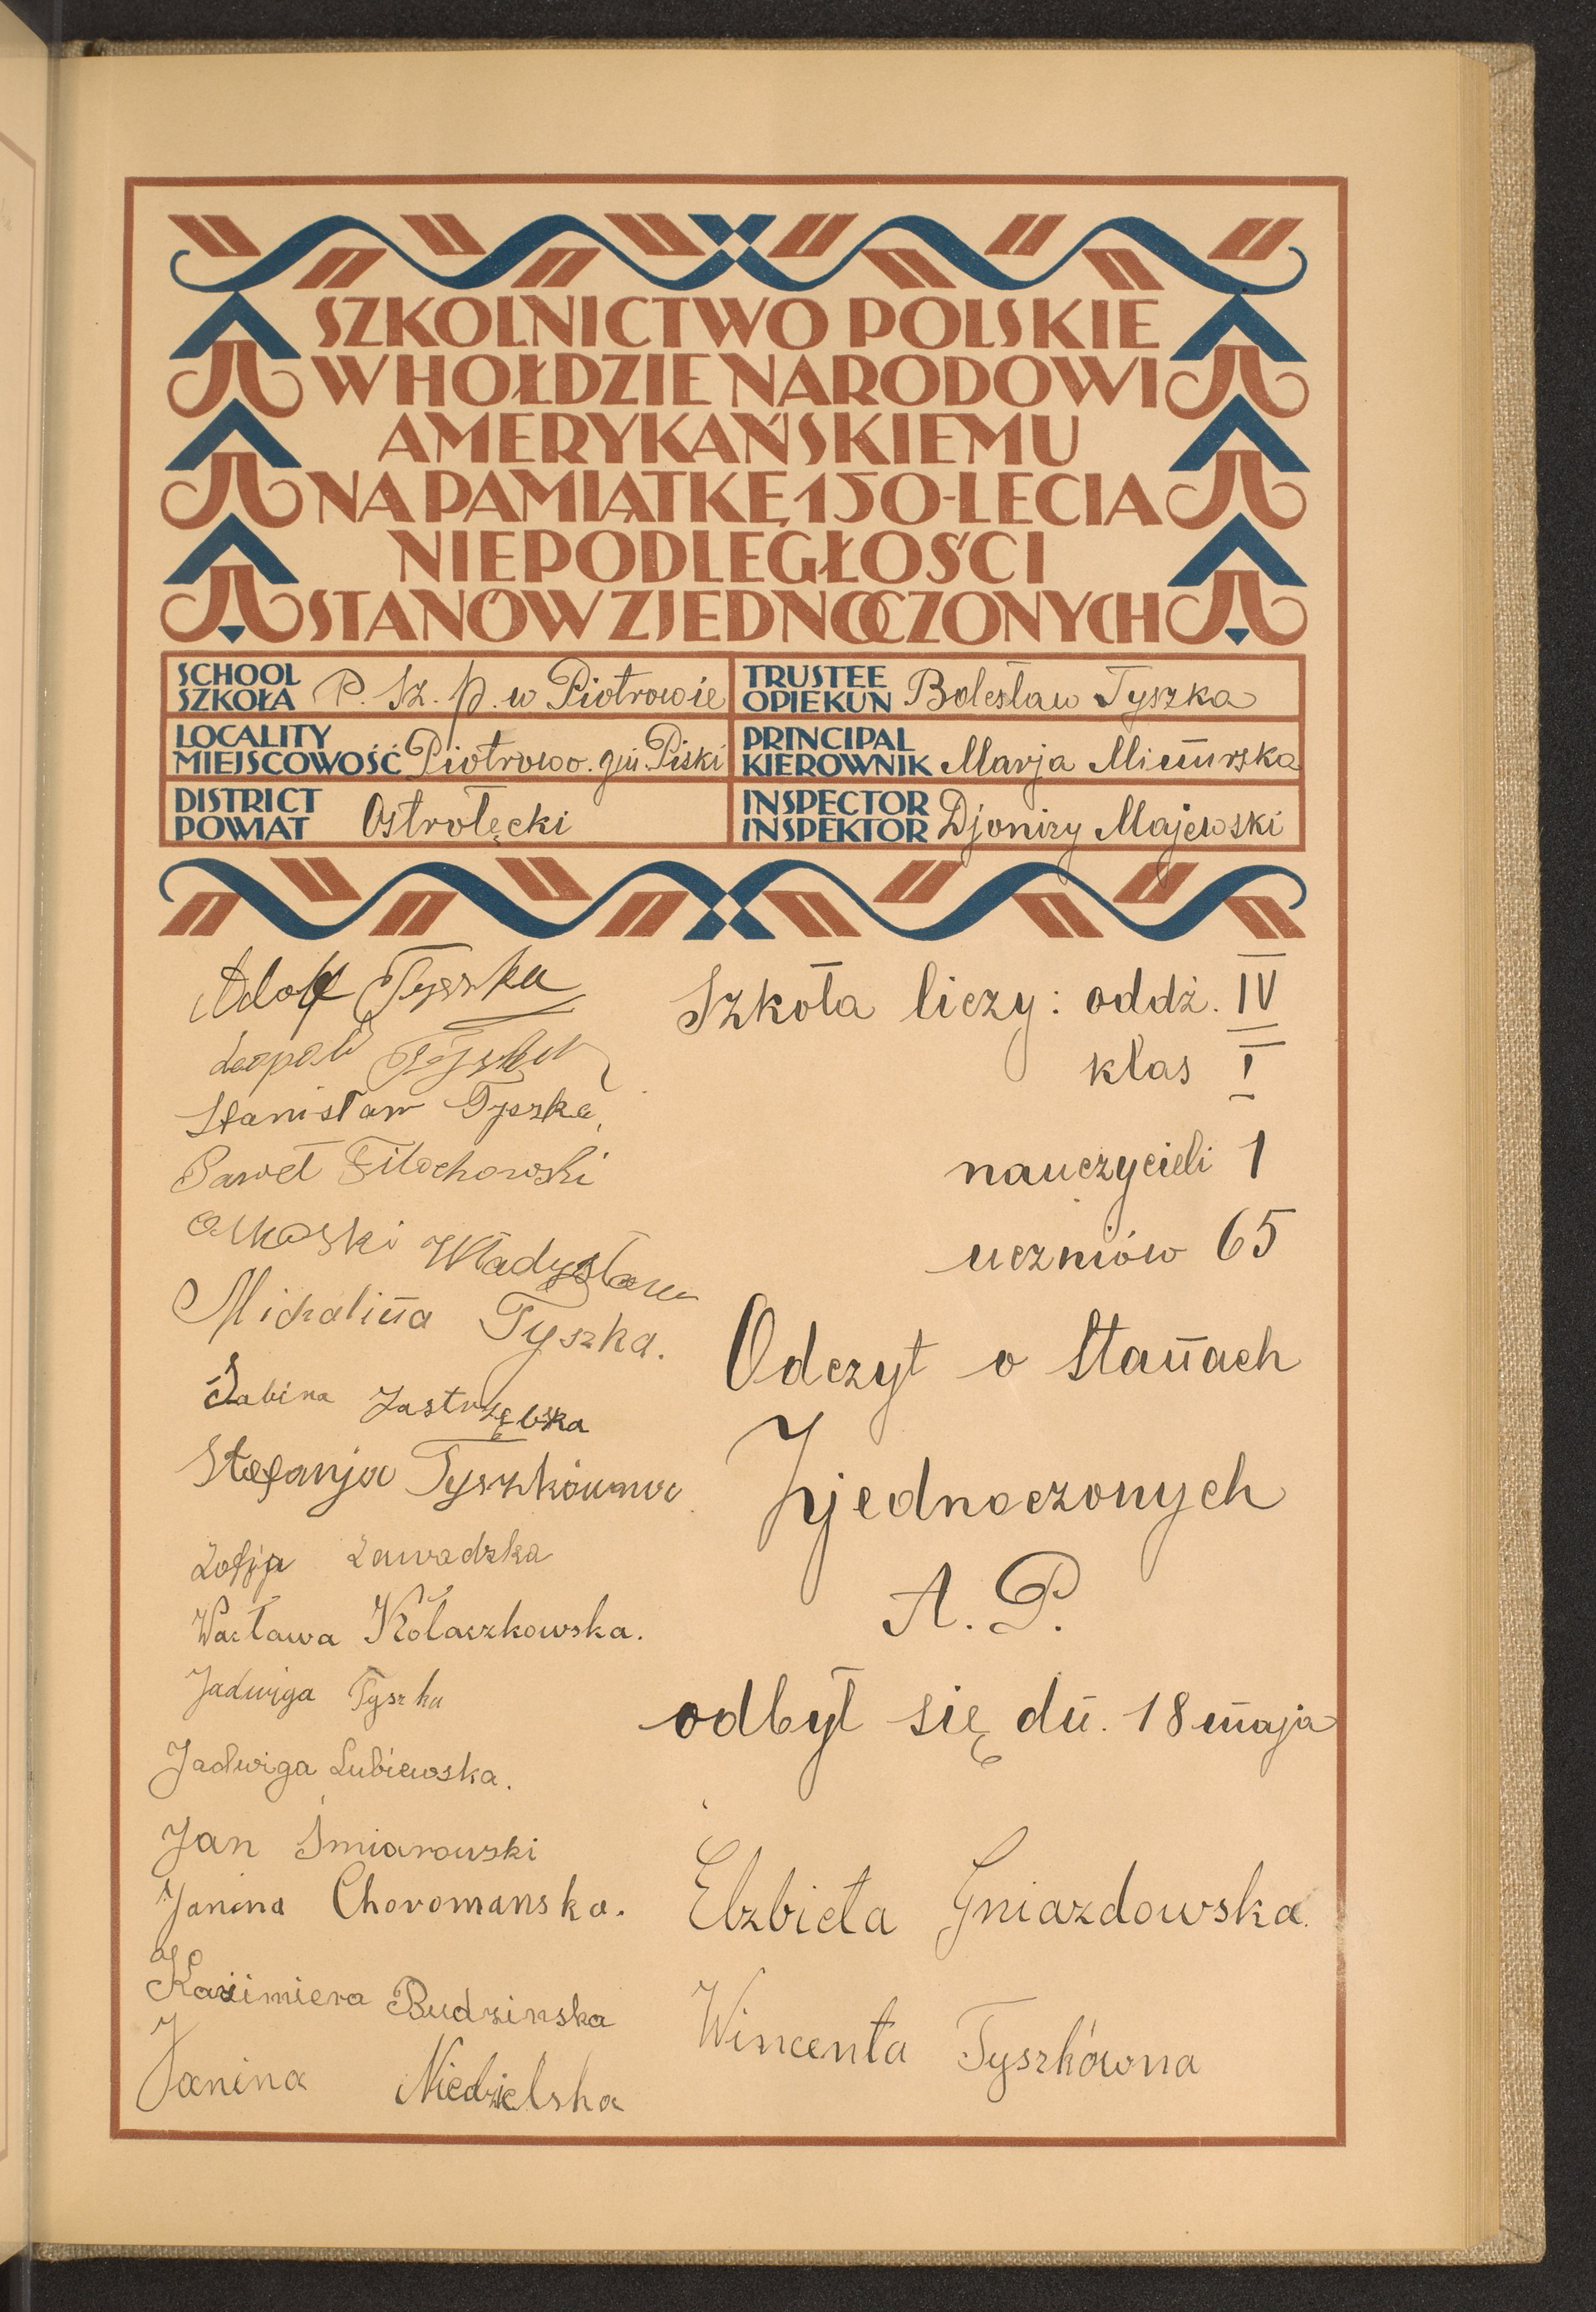 SZKOLNICTWO POLSKIE
W HOŁDZIE NARODOWI
AMERYKAŃSKIEMU
NA PAMIĄTKĘ 150-LECIA
NIEPODLEGŁOŚCI
STANÓW ZJEDNOCZONYCH
SCHOOL
SZKOŁA P. Sz. p. w Piotrowie
TRUSTEE
OPIEKUN Bolesław Tyszka
LOCALITY
MIEJSCOWOŚĆ Piotrowo. gm. Piski
PRINCIPAL
KIEROWNIK Marja
DISTRICT
POWIAT Ostrołęcki
INSPECTOR
INSPEKTOR Djonizy Majewski
Adolf Tyszka
Leopold Tyszka
Stanisław Tyszka
Paweł Filochowski
Władysław
Michalina Tyszka.
Sabina Jastrzębska
Stefanja Tyszkówna
Zofja Zawadzka
Wacława Kołaczkowska.
Jadwiga Tyszka
Jadwiga Lubiewska.
Jan Śmiarowski
Janina Choromanska.
Kazimiera Budzinska
Janina Niedzielska
Szkoła liczy: oddż. IV
klas I
nauczycieli 1
uczniów 65
Odczyt o Stanach
Zjednoczonych
A. P.
odbył się dn. 18 maja
Elzbieta Gniazdowska.
Wincenta Tyszkówna